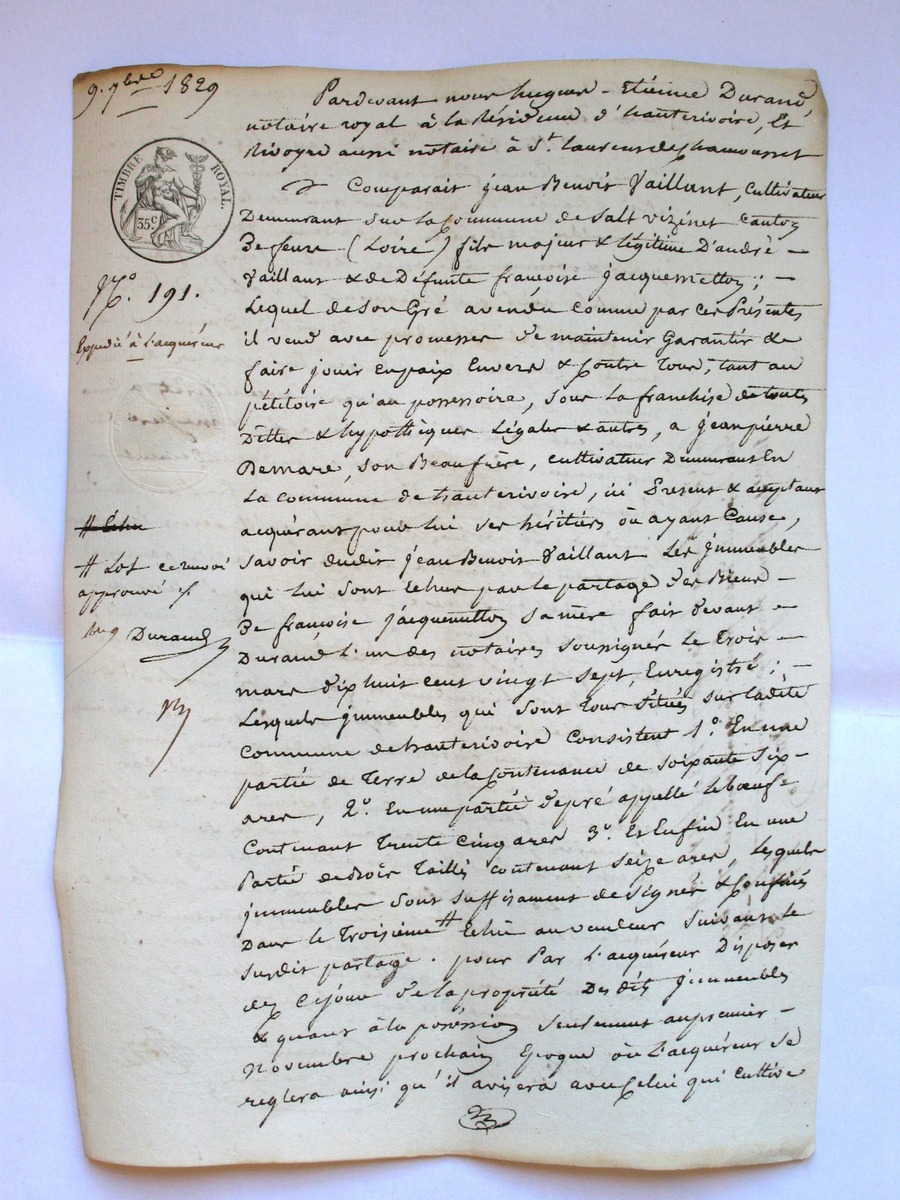 9. 7bre 1829
TIMBRE ROYAL.
35c
No. 191.
Expedié à L'acquéreur
# Echu
# Lot ce renvoi
approuvé
hug Durand
Pardevant nous hugues - Etienne Durand,
notaire royal à la Résidence d'hauterivoire, Et
Rivoyre aussi notaire à St. Laurent de chamousset
Comparait jean Benoit Vaillant, cultivateur
Demeurant sur la Commune de Salt vizinet Canton
De feurs (Loire) fils majeur & légitime D'andré -
Vaillant & de Défunte françoise jacquemetton; -
Lequel de son Gré a vendu comme par ces Présentes
il vend avec promesses de maintenir Garantir & de
faire jouir En paix Envers & Contre Tous, tant au
pétitoire qu'au possessoire, sous la franchise de toutes
Dettes & hypothèques Légales & autres, a jean pierre
Demare, son Beaufrère, cultivateur Demeurant En
La commune de hauterivoire, ici Present & acceptant
acquérant pour lui ses héritiers où ayant Cause,
savoir dudit jean Benoit Vaillant Les jmmeubles
qui lui sont Echus par le partage des Biens -
De françoise jacquemetton sa mère fait devant -
Durand L'un des notaires soussignés Le Trois -
mars dix huit cent vingt sept, Enregistré; -
Lesquels jmmeubles qui sont Tous Situés sur ladite
Commune de hauterivoire Consistent 1o. En une
partie de Terre de la Contenance de soixante six -
ares, 2o. En une partie de pré appellé Le bœuf -
Contenant Trente Cinq ares 3o. Et Enfin En une
Partie de Bois Taillis contenant seize ares, Lesquels
jmmeubles sont suffisament de signés & Confinés
Dans le Troisième # Echu au vendeur suivant le
susdit partage. pour Par L'acquéreur Disposer
des Cejour de la propriété Des dits jmmeubles
& quant à la possession seulement au premier -
novembre prochain Epoque où L'acquéreur se
reglera ainsi qu'il avisera avec Celui qui cultive